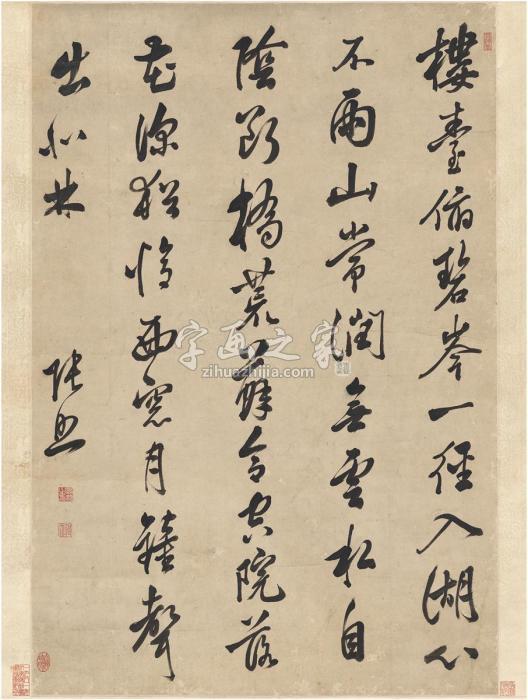 樓臺俯碧岑一徑入湖心
不雨山常潤無雲松自
陰斷橋荒蘚合空院落
花深猶憶西窗月鐘聲
出北林
張照
字画之家
zihuazhijia.com